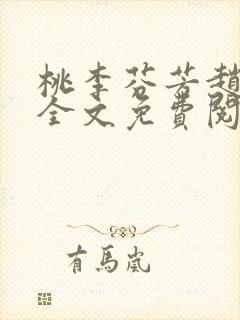 桃李芬芳趙
全文免費閱
有馬嵐